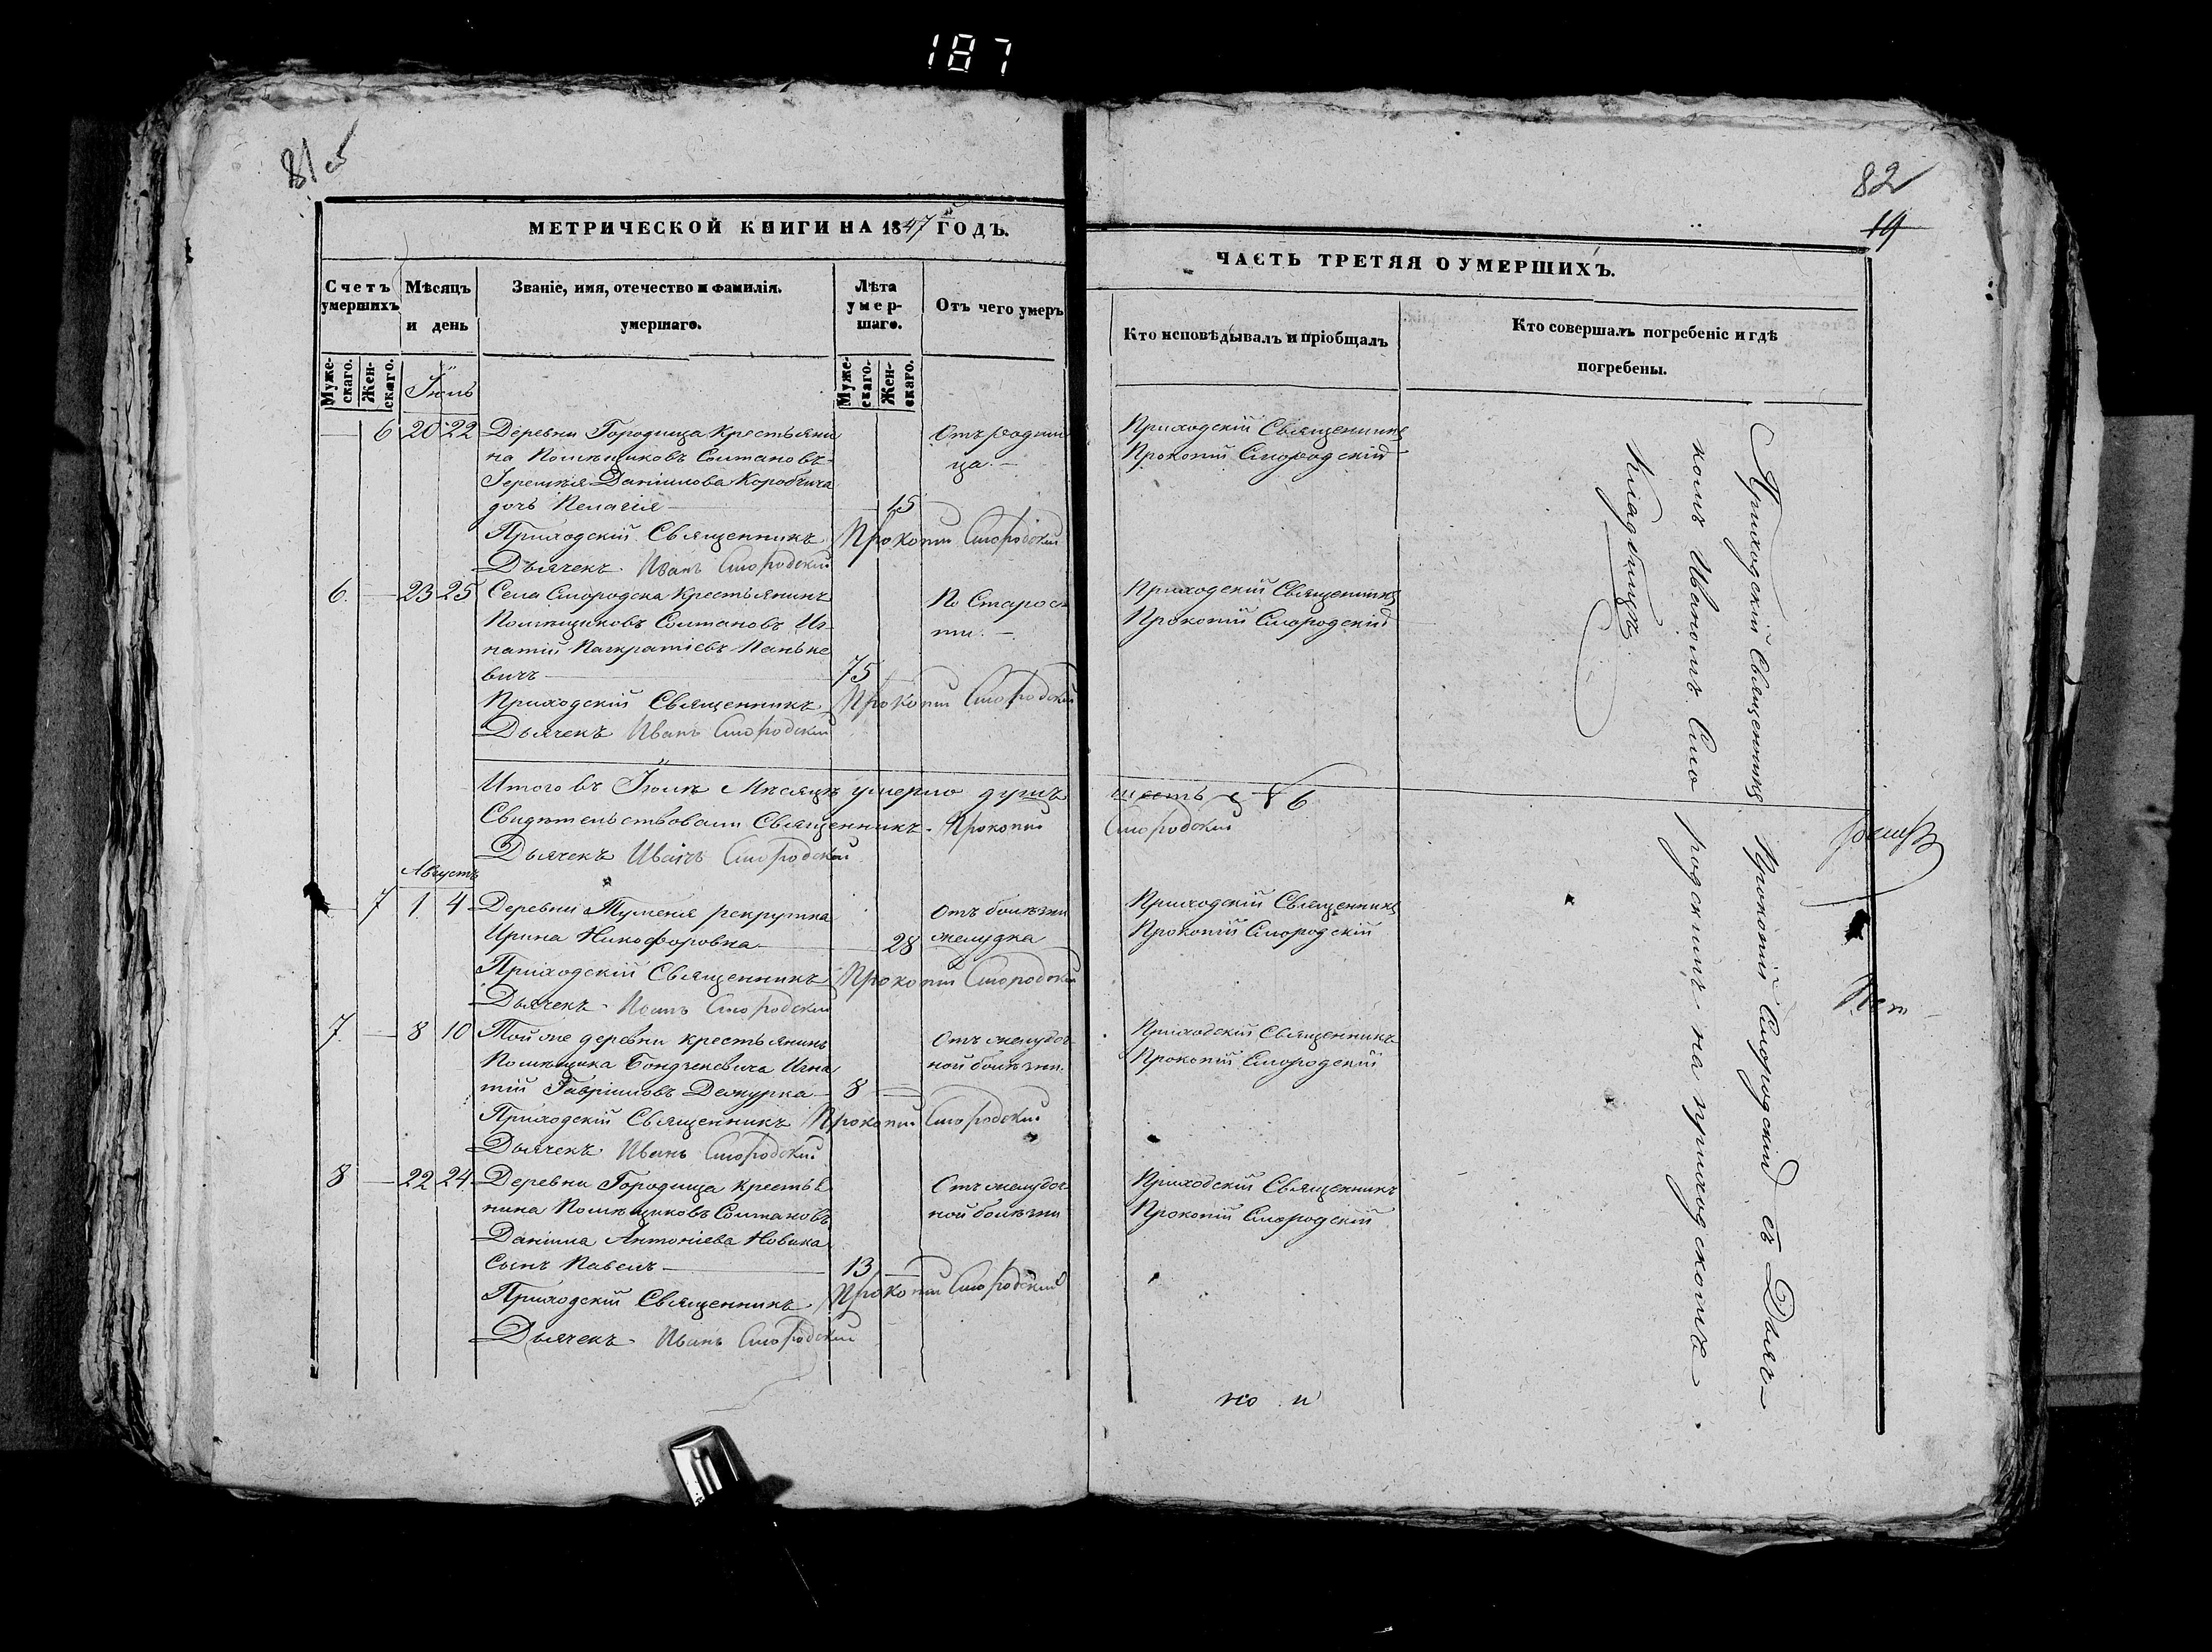 187
81 об
82
19
МЕТРИЧЕСКОЙ КНИГИ НА 1847й ГОДЪ.
Счетъ умершихъ
Мѣсяцъ и день
Званіе, имя, отечество и фамилія.
умершаго.
Лѣта умер-шаго.
Отъ чего умеръ
Муже-скаго.
Жен-скаго.
Муже-скаго.
Жен-скаго.
Іюль
— 6 20 22 Деревни Городища Крестьяни
на Помѣщиковъ Солтановъ
Іеремѣя Даніилова Коробчича
дочь Пелагія — 15
Отъ родим
ца. —
Приходскій Священникъ Прокопій Смородскій
Дьячекъ Иванъ Смородскій
6. — 23 25 Села Смородска Крестьянинъ
Помѣщиковъ Солтановъ Иг-
натій Панкратіевъ Панъке
вичъ — 75
По Старос
ти. —
Приходскій Священникъ Прокопій Смородскій
Дьячекъ Иванъ Смородскій
Итого въ Іюлѣ Мѣсяцѣ умерло душъ шесть — 6
Свидѣтельствовали Священникъ Прокопій Смородскій
Дьячекъ Иванъ Смородскій
Августъ
— 7 1 4 Деревни Туменя рекрутка
Ирина Никофоровна — 28
Отъ болѣзни
желудка
Приходскій Священникъ Прокопій Смородскій
Дьячекъ Иванъ Смородскій
7. — 8 10 Той же деревни крестьянинъ
Помѣщика Бондзкевича Игна
тій Гавріиловъ Дежурка — 8 —
Отъ желудоч
ной болѣзни.
Приходскій Священникъ Прокопій Смородскій
Дьячекъ Иванъ Смородскій
8 — 22 24 Деревни Городища крестья
нина Помѣщиковъ Солтановъ
Даніила Антоніева Новика
Сынъ Павелъ — 13 —
Отъ желудоч
ной болѣзни
Приходскій Священникъ Прокопій Смородскій
Дьячекъ Иванъ Смородскій
ЧАСТЬ ТРЕТЯЯ О УМЕРШИХЪ.
Кто исповѣдывалъ и пріобщалъ
Кто совершалъ погребеніе и гдѣ
погребены.
Приходскій Священникъ
Прокопій Смородскій
Приходскій Священникъ
Прокопій Смородскій
Приходскій Священникъ
Прокопій Смородскій
Приходскій Священникъ
Прокопій Смородскій
Приходскій Священникъ
Прокопій Смородскій
Приходскій Священникъ Прокопій Смородскій съ Дьяч-
комъ Иваномъ Смородскимъ на приходскомъ
Кладбищѣ.
по и